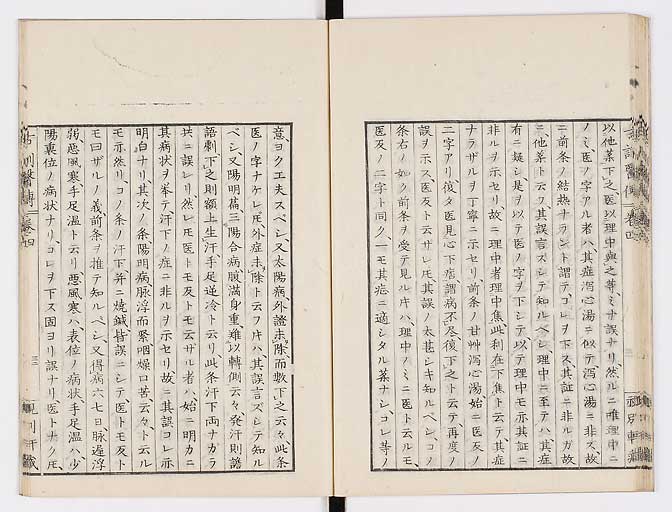 以他藥下之医以理中與之等ミナ誤ナリ然ルニ唯理中ニ
ノミ医ノ字アル者ハ其症瀉心湯ニ似テ瀉心湯ニ非ズ故
ニ前条ノ結熱ナラント謂テコレヲ下ス其証ニ非ルガ故
ニ他藥ト云フ其誤言ズシテ知ルベシ理中ニ至テハ其症
有ニ疑シ是ヲ以テ医ノ字ヲ下シテ以テ理中モ亦其証ニ
非ルヲ示セリ故ニ理中者理中焦此利在下焦ト云テ其症
ナラザルヲ丁寧ニ示セリ前条ノ甘艸瀉心湯始ニ医反ノ
二字アリ後タ医見心下痞謂病不尽復下之ト云テ再度ノ
誤ヲ示ス医反ト云ザレ𪜈其誤ノ太甚シキ知ルベシコノ
条右ノ如ク前条ヲ受テ見ル片ハ理中ノミニ医ト云ルモ
医反ノ二字ト同ク一モ其症ニ適シタル藥ナシコレ等ノ
意ヨク工夫スベシ又太陽病外證未除而數下之云々此条
医ノ字ナケレ𪜈外症未除ト云フ片ハ其誤言ズシテ知ル
ベシ又陽明篇三陽合病腹滿身重難以轉側云々発汗則譫
語下之則額上生汗手足逆冷ト云リ此条汗下両ナガラ
共ニ誤レリ然レ𪜈医トモ反トモ云ザル者ハ始ニ明カニ
其病状ヲ挙テ汗下ノ症ニ非ルヲ示セリ故ニ其誤コレ亦
明白ナリ其次ノ条陽明病脉浮而緊咽燥口苦云々ト云ル
モ亦然リコノ条ノ汗下并ニ焼鍼皆誤ニシテ医トモ反ト
モ曰ザルノ義前条ヲ推テ知ルベシ又得病六七日脉遅浮
弱悪風寒手足温ト云リ悪風寒ハ表位ノ病状手足温ハ少
陽裏位ノ病状ナリコレヲ下ス固ヨリ誤ナリ医トナク𪜈